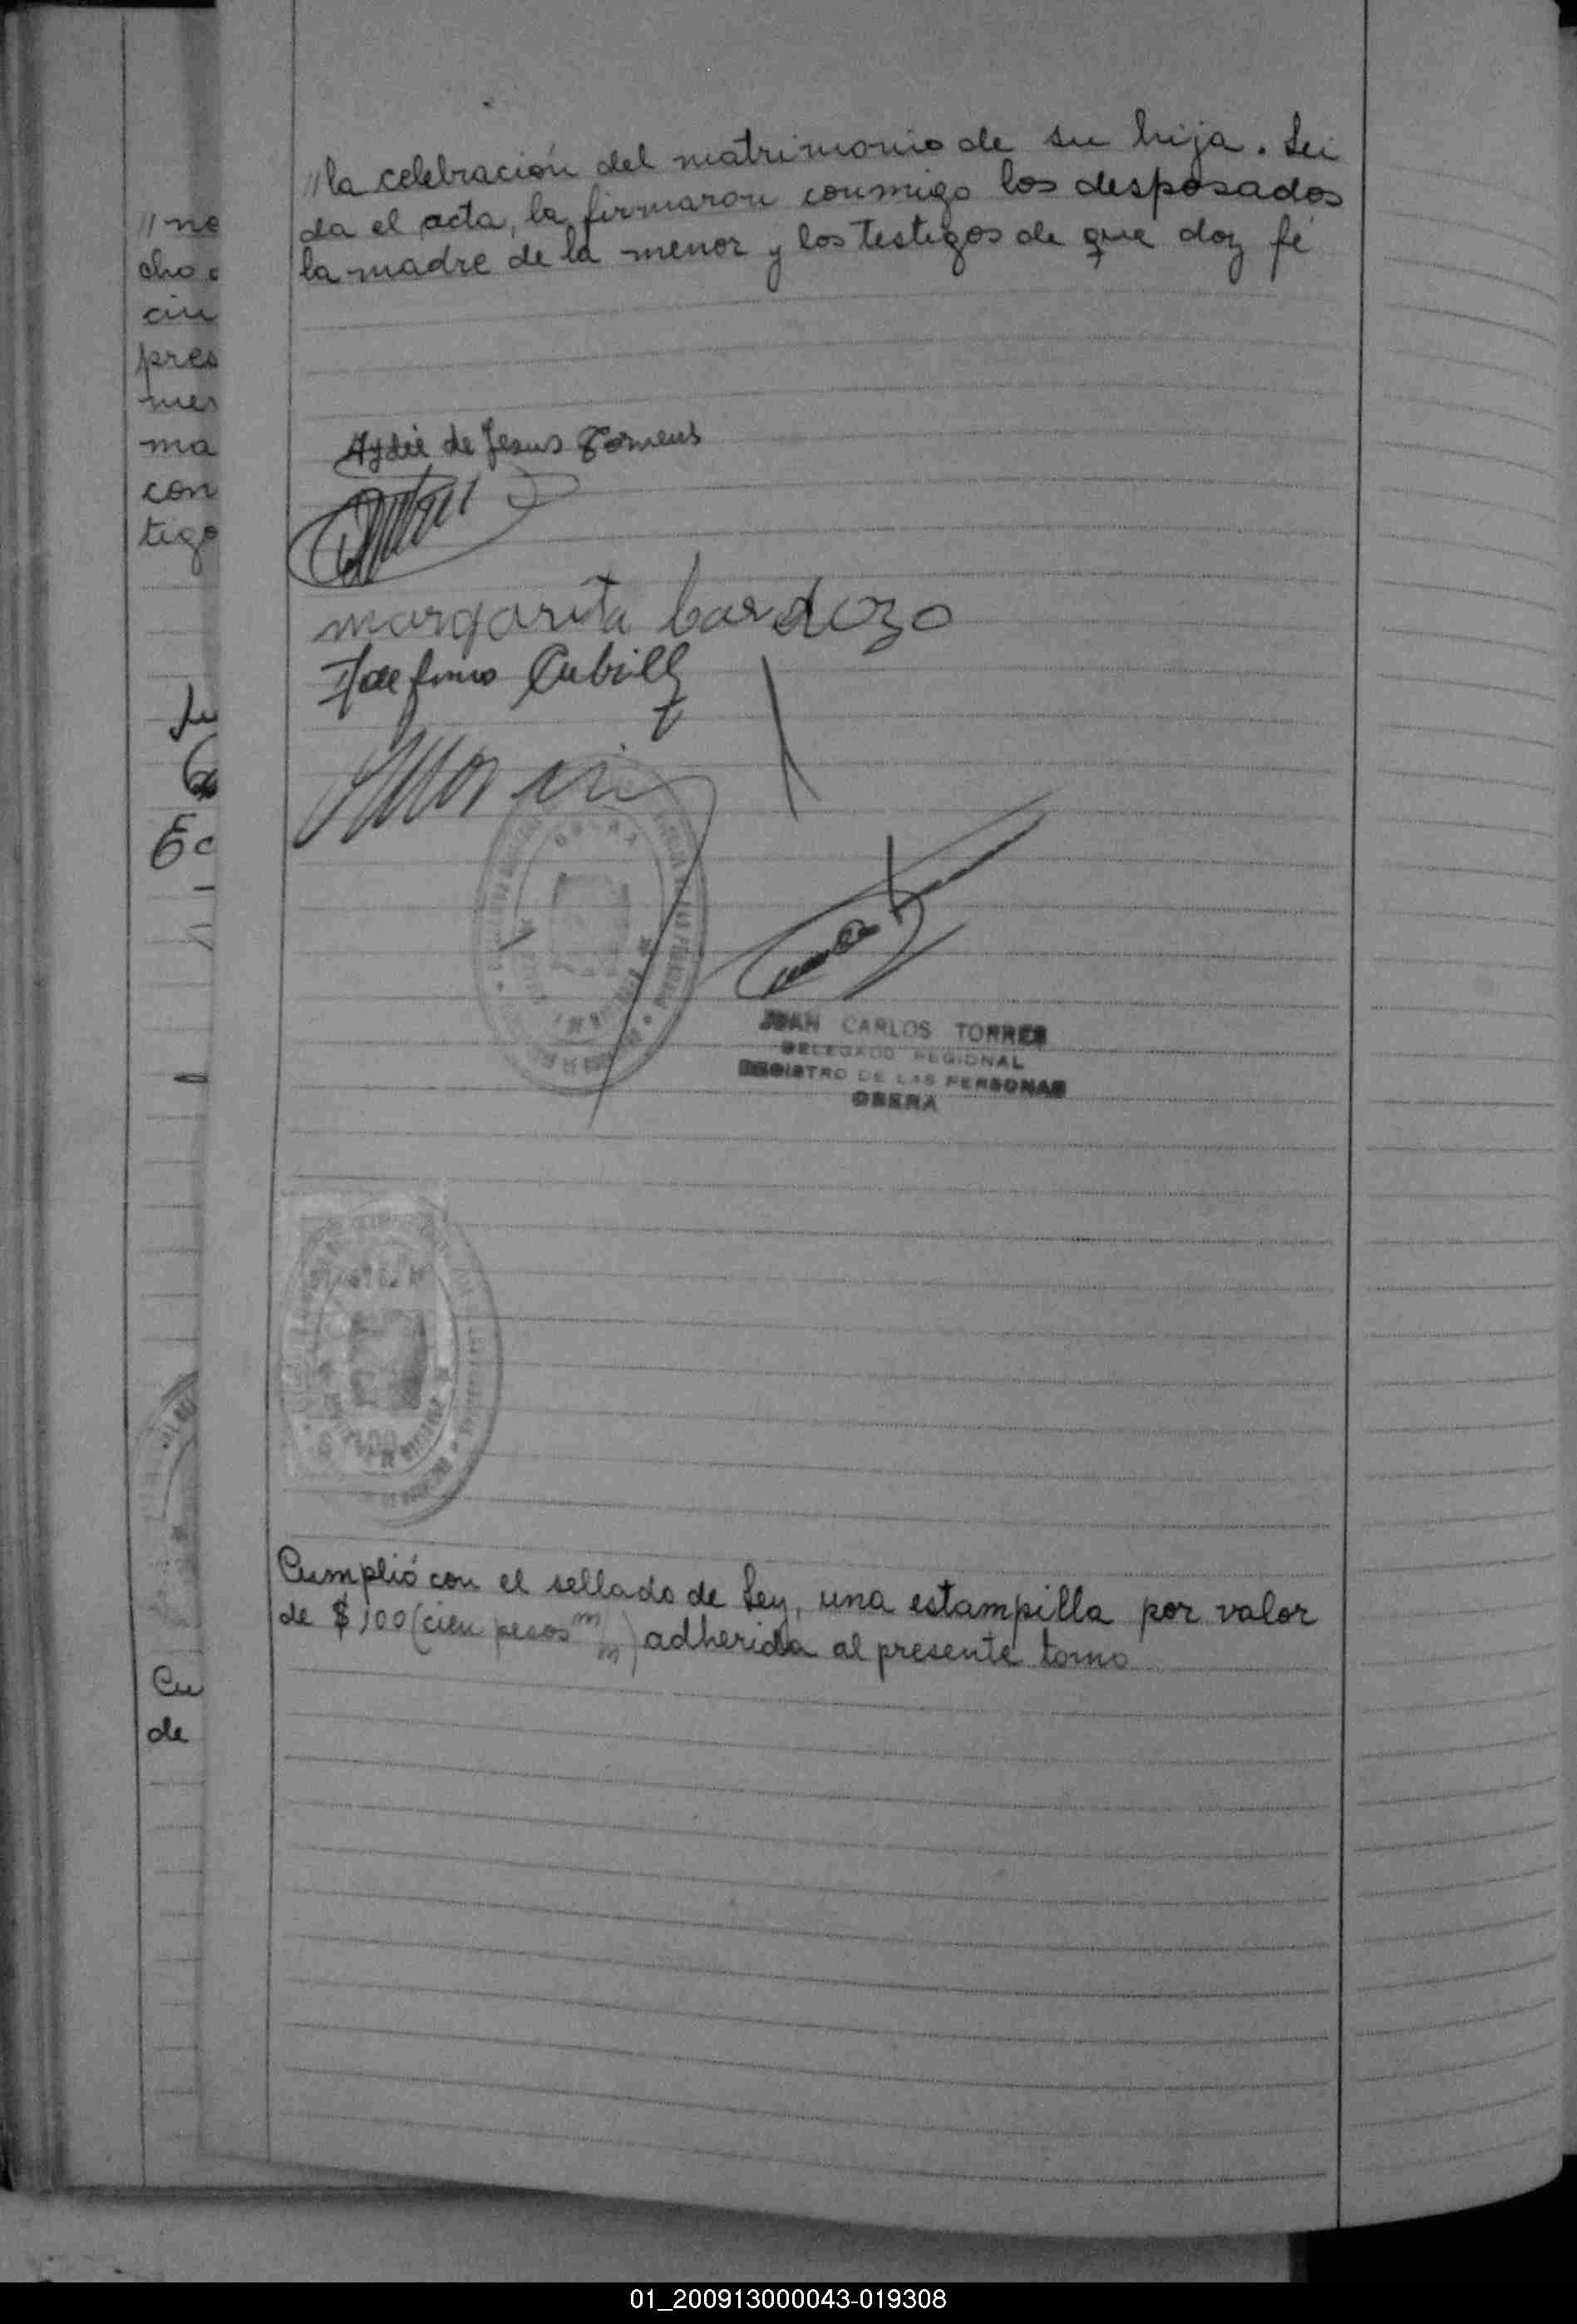 //la celebración del matrimonio de su hija. Lei
da el acta, la firmaron conmigo los desposados
la madre de la menor y los testigos de que doy fé
// no
cho
cin
pres
men
ma
con
tigo
Aydée de Jesus
margarita Cardozo
Ildefonso Cubilla
OBERA
JUAN CARLOS TORRES
DELEGADO REGIONAL
REGISTRO DE LAS PERSONAS
OBERA
$ 100
Cumplió con el sellado de Ley, una estampilla por valor
de $100 (cien pesos m/m) adherida al presente tomo
Cu
de
01_200913000043-019308